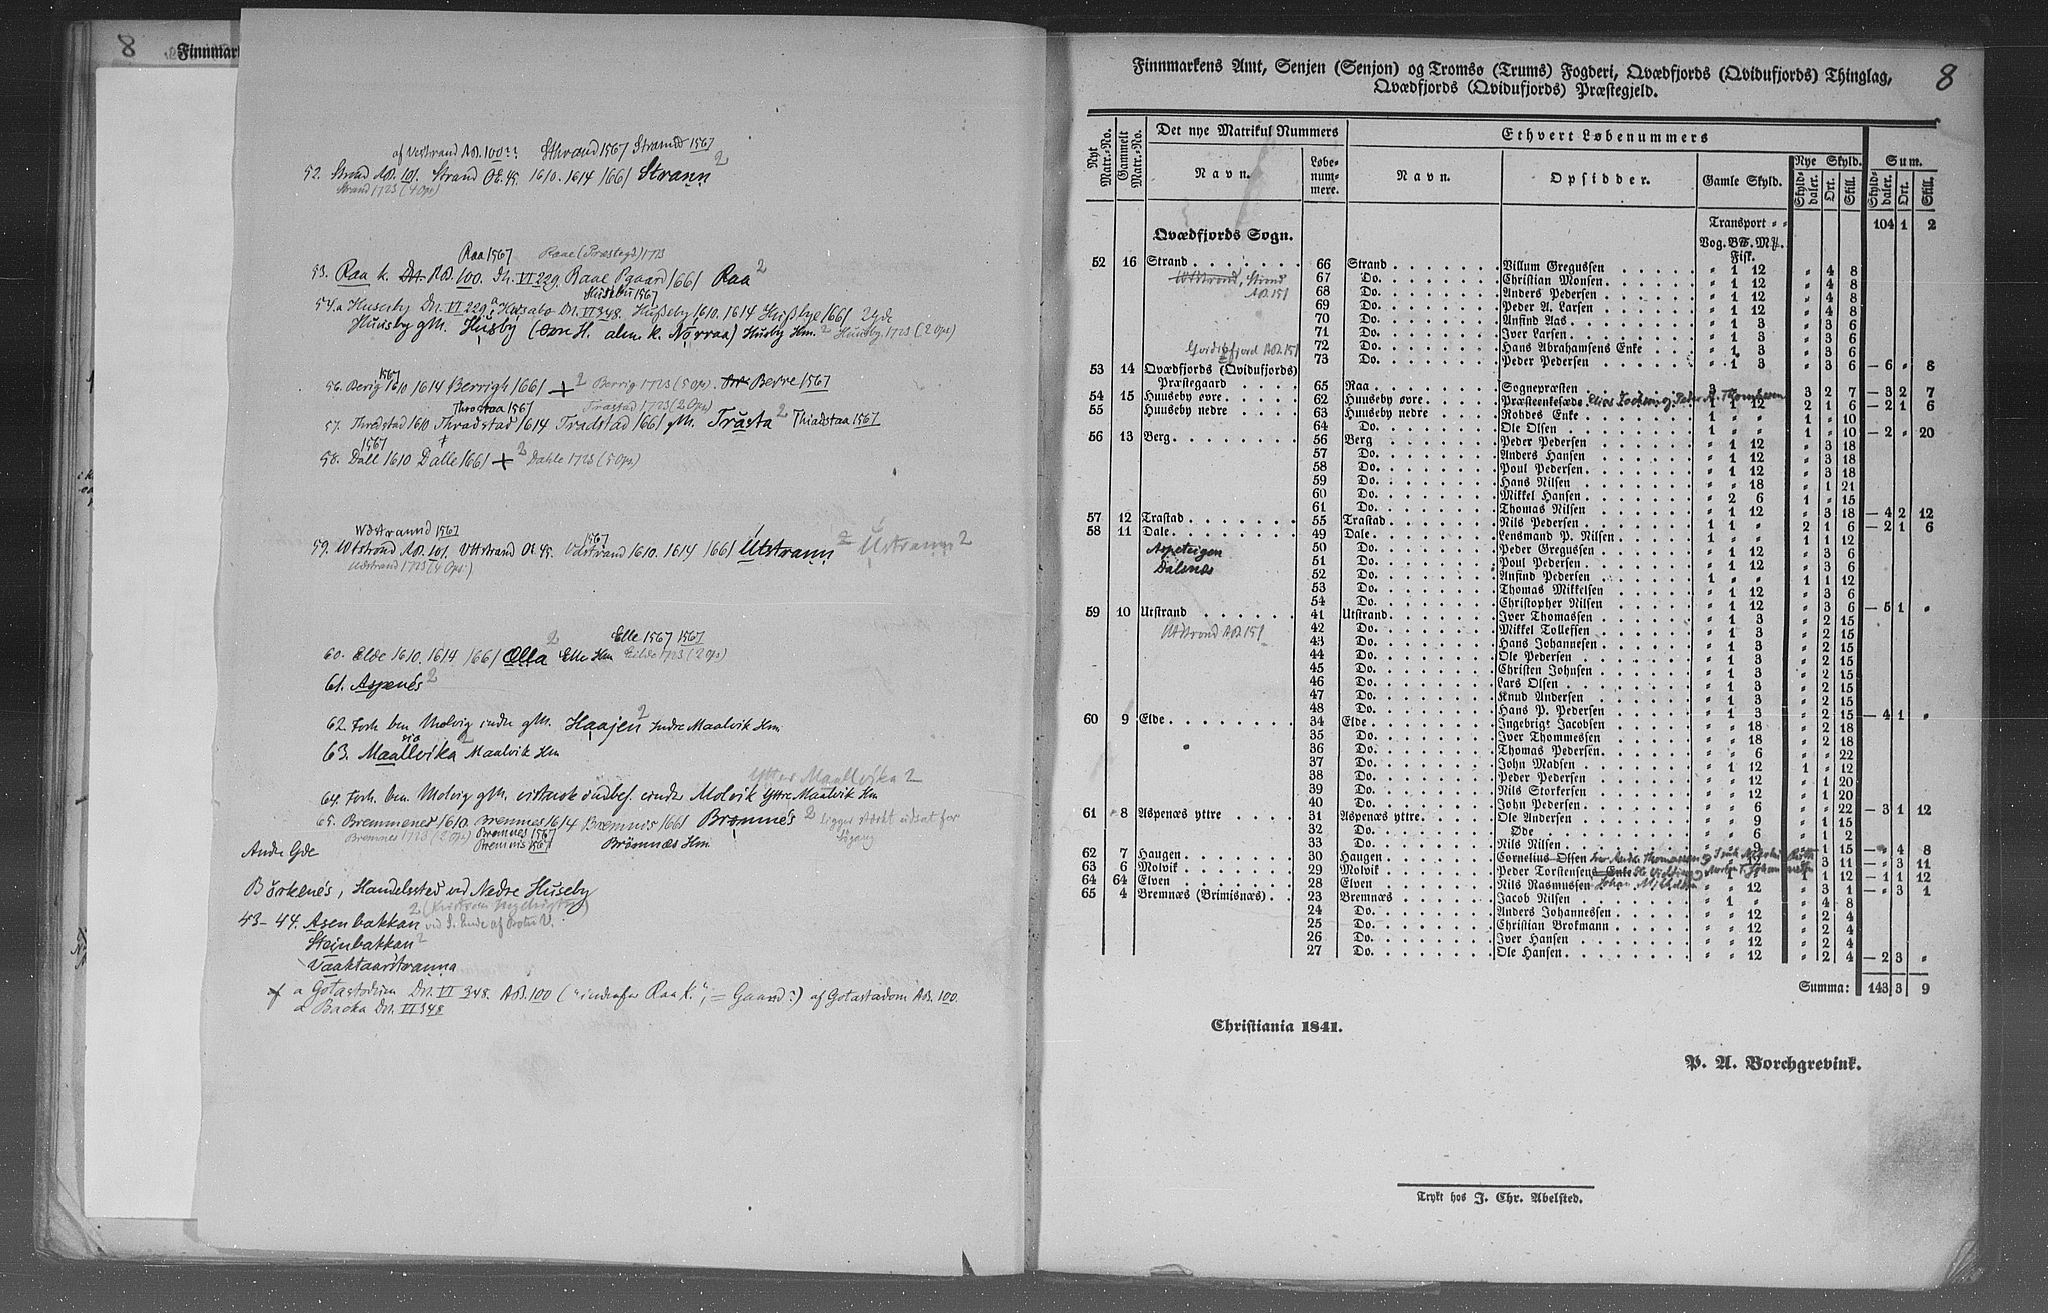 8
Finnmark
af Vestrand AB. 100?? Sthrand 1567 Strannd 1567
52. Strand AB. 101. Strand OE. 45. 1610. 1614 1661 Strann 2
Strand 1723 (4 Ops)
Raa 1567 Raae (Præstegd) 1723
53. Raa k. AB. 100. Dn. VI 229. Raae Pgaard 1661 Raa 2
Husebu 1567
54. a Huseby Dn. VI 229, a Husabo Dn. VI 348. Husseby 1610. 1614 Hussbye 1661 2gde
Huusby gM. Husby (Øvre H. alm. k. Norraa) Husby Hm. 2 Huusby 1723 (2 Ops)
56. Berig 1567 1610 1614 Berrigh 1661 + 2 Berrig 1723 (5 Ops). Berre 1567
Throstaa 1567 Trastad 1723 (2 Ops)
57. Thradstad 1610 Thradstad 1614 Tradstad 1661 gM. Trasta 2 Thiadstaa 1567
1567
58. Dall 1610 Dalle 1661 + 2 Dahle 1723 (5 Ops)
Wdstrannd 1567
1567
59. Utstrond AB. 101. Uttstrand OE. 45. Udstrand 1610. 1614 1661 Utstrann 2 Ustrann 2
Udstrand 1723 (4 Ops)
2 Elle 1567 1567
60. Elde 1610. 1614 1661 Ella Elle Hm Eilde 1723 (2 Ops)
61. Aspenes 2
62. Forh. ben. Molvig indre gM. Haajen 2 Indre Maalvik Hm.
63. Maallvika 2 Maalvik Hm
Ytter Maallvika 2
64. Forh. ben. Molvig gM. virkende indbef. under Molvik Yttre Maalvik Hm
65. Bremmenes 1610. Bremnes 1614 Bremnis 1661 Bromnes 2 ligger stærkt udsat for
Bremnes 1723 (2 Ops) Bremnes 1567 Søgang
Bremnis 1567 Brömnæs Hm.
Andre Gde
Børkenes, Handelssted ved Nedre Huseby
43-44. Asenbakkan ved
Steinbakkan 2
Vaaktaarstranna
a Gotastodum Dn. VI 348. AB. 100 ("indenfor Raa k.", = Gaard?) af Gotastadom AB. 100.
a Backa Dn. VI 348
Finnmarkens Amt, Senjen (Senjon) og Tromsø (Trums) Fogderi, Qvædfjords (Qvidufjords) Thinglag, 8
Qvædfjords (Qvidufjords) Præstegjeld.
Nyt Matr.-No. Gammelt Matr.-No. Det nye Matrikul Nummers Ethvert Løbenummers
Navn. Løbe-nummere. Navn. Opsidder. Gamle Skyld. Nye Skyld. Sum.
Skylddaler. Ort. Skill. Skylddaler. Ort. Skill.
Transport " " 104 1 2
Qvædfjords Sogn. Vog. BƁ. Mk. Fisk.
52 16 Strand 66 Strand Villum Gregussen " 1 12 " 4 8
67 Do. Christian Monsen " 1 12 " 4 8
Utstrond, Strond AB. 151
68 Do. Anders Pedersen " 1 12 " 4 8
69 Do. Peder A. Larsen " 1 12 " 4 8
70 Do. Anfind Aas " 1 3 " 3 6
71 Do. Iver Larsen " 1 3 " 3 6
72 Do. Hans Abrahamsens Enke " 1 3 " 3 6
73 Do. Peder Pedersen " 1 3 " 3 6 — 6 " 8
53 14 Qvædfjords (Qvidufjords)
Præstegaard 65 Raa Sognepræsten 3 " " 3 2 7 — 3 2 7
54 15 Huuseby øvre 62 Huuseby øvre Præsteenkesæde 1 1 12 2 1 6 — 2 1 6
55 Huuseby nedre 63 Huuseby nedre Rohdes Enke 1 " " 1 " 10
64 Do. Ole Olsen 1 " " 1 " 10 — 2 " 20
56 13 Berg 56 Berg Peder Pedersen " 1 12 " 3 18
57 Do. Anders Hansen " 1 12 " 3 18
58 Do. Poul Pedersen " 1 12 " 3 18
59 Do. Hans Nilsen " " 18 " 1 21
60 Do. Mikkel Hansen " 2 6 1 " 15
61 Do. Thomas Nilsen " 1 12 " 3 18 — 4 2 12
57 12 Trastad 55 Trastad Nils Pedersen 1 1 " 2 1 6 — 2 1 6
58 11 Dale 49 Dale Lensmand P. Nilsen 1 " " 1 1 12
Aspeteigen
50 Do. Peder Gregussen " 1 12 " 3 6
Dalsnæs
51 Do. Poul Pedersen " 1 12 " 3 6
52 Do. Anfind Pedersen 1 " " 1 1 12
53 Do. Thomas Mikkelsen " 1 12 " 3 6
54 Do. Christopher Nilsen " 1 12 " 3 6 — 5 1 "
59 10 Utstrand 41 Utstrand Iver Thomassen " 1 3 " 2 15
Utstrond AB. 151
42 Do. Mikkel Tollefsen " 1 3 " 2 15
43 Do. Hans Johannesen " 1 3 " 2 15
44 Do. Ole Pedersen " 1 3 " 2 15
45 Do. Christen Johnsen " 1 3 " 2 15
46 Do. Lars Olsen " 1 3 " 2 15
47 Do. Knud Andersen " 1 3 " 2 15
48 Do. Hans P. Pedersen " 1 3 " 2 15 — 4 1 "
60 9 Elde 34 Elde Ingebrigt Jacobsen " " 18 " 2 18
35 Do. Iver Thommessen " " 18 " 2 18
36 Do. Thomas Pedersen " " 6 " " 22
37 Do. John Madsen " 1 12 1 " 12
38 Do. Peder Pedersen " " 12 " 1 20
39 Do. Nils Storkersen " " 12 " 1 20
40 Do. John Pedersen " " 6 " " 22 — 3 1 12
61 8 Aspenæs yttre 31 Aspenæs yttre Ole Andersen " " 9 " 1 15
32 Do. Øde " " 6 " 1 2
33 Do. Nils Nilsen " " 9 " 1 15 — " 4 8
62 7 Haugen 30 Haugen Cornelius Olsen " 3 11 — " 3 11
63 6 Molvik 29 Molvik Peder Torstensens Enke 1 1 12 — 1 1 12
64 64 Elven 28 Elven Nils Rasmussen " " 12 " 3 1 — " 3 1
65 4 Bremnæs (Brimisnæs) 23 Bremnæs Jacob Nilsen " 1 " " 4 8
24 Do. Anders Johannessen " " 12 " 2 4
25 Do. Christian Brokmann " " 12 " 2 4
26 Do. Iver Hansen " " 12 " 2 4
27 Do. Ole Hansen " " 12 " 2 4 — 2 3 "
Summa: 143 3 9
Christiania 1841.
P. A. Borchgrevink.
Trykt hos J. Chr. Abelsted.